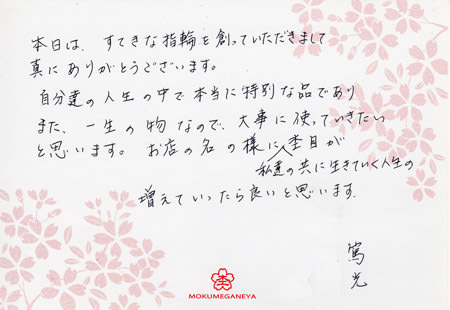 本日は、すてきな指輪を創っていただきまして
真にありがとうございます。
自分達の人生の中で本当に特別な品であり
また、一生の物なので、大事に使っていきたい
と思います。お店の名の様に杢目が
私達の共に生きていく人生の
増えていったら良いと思います。
篤光
MOKUMEGANEYA